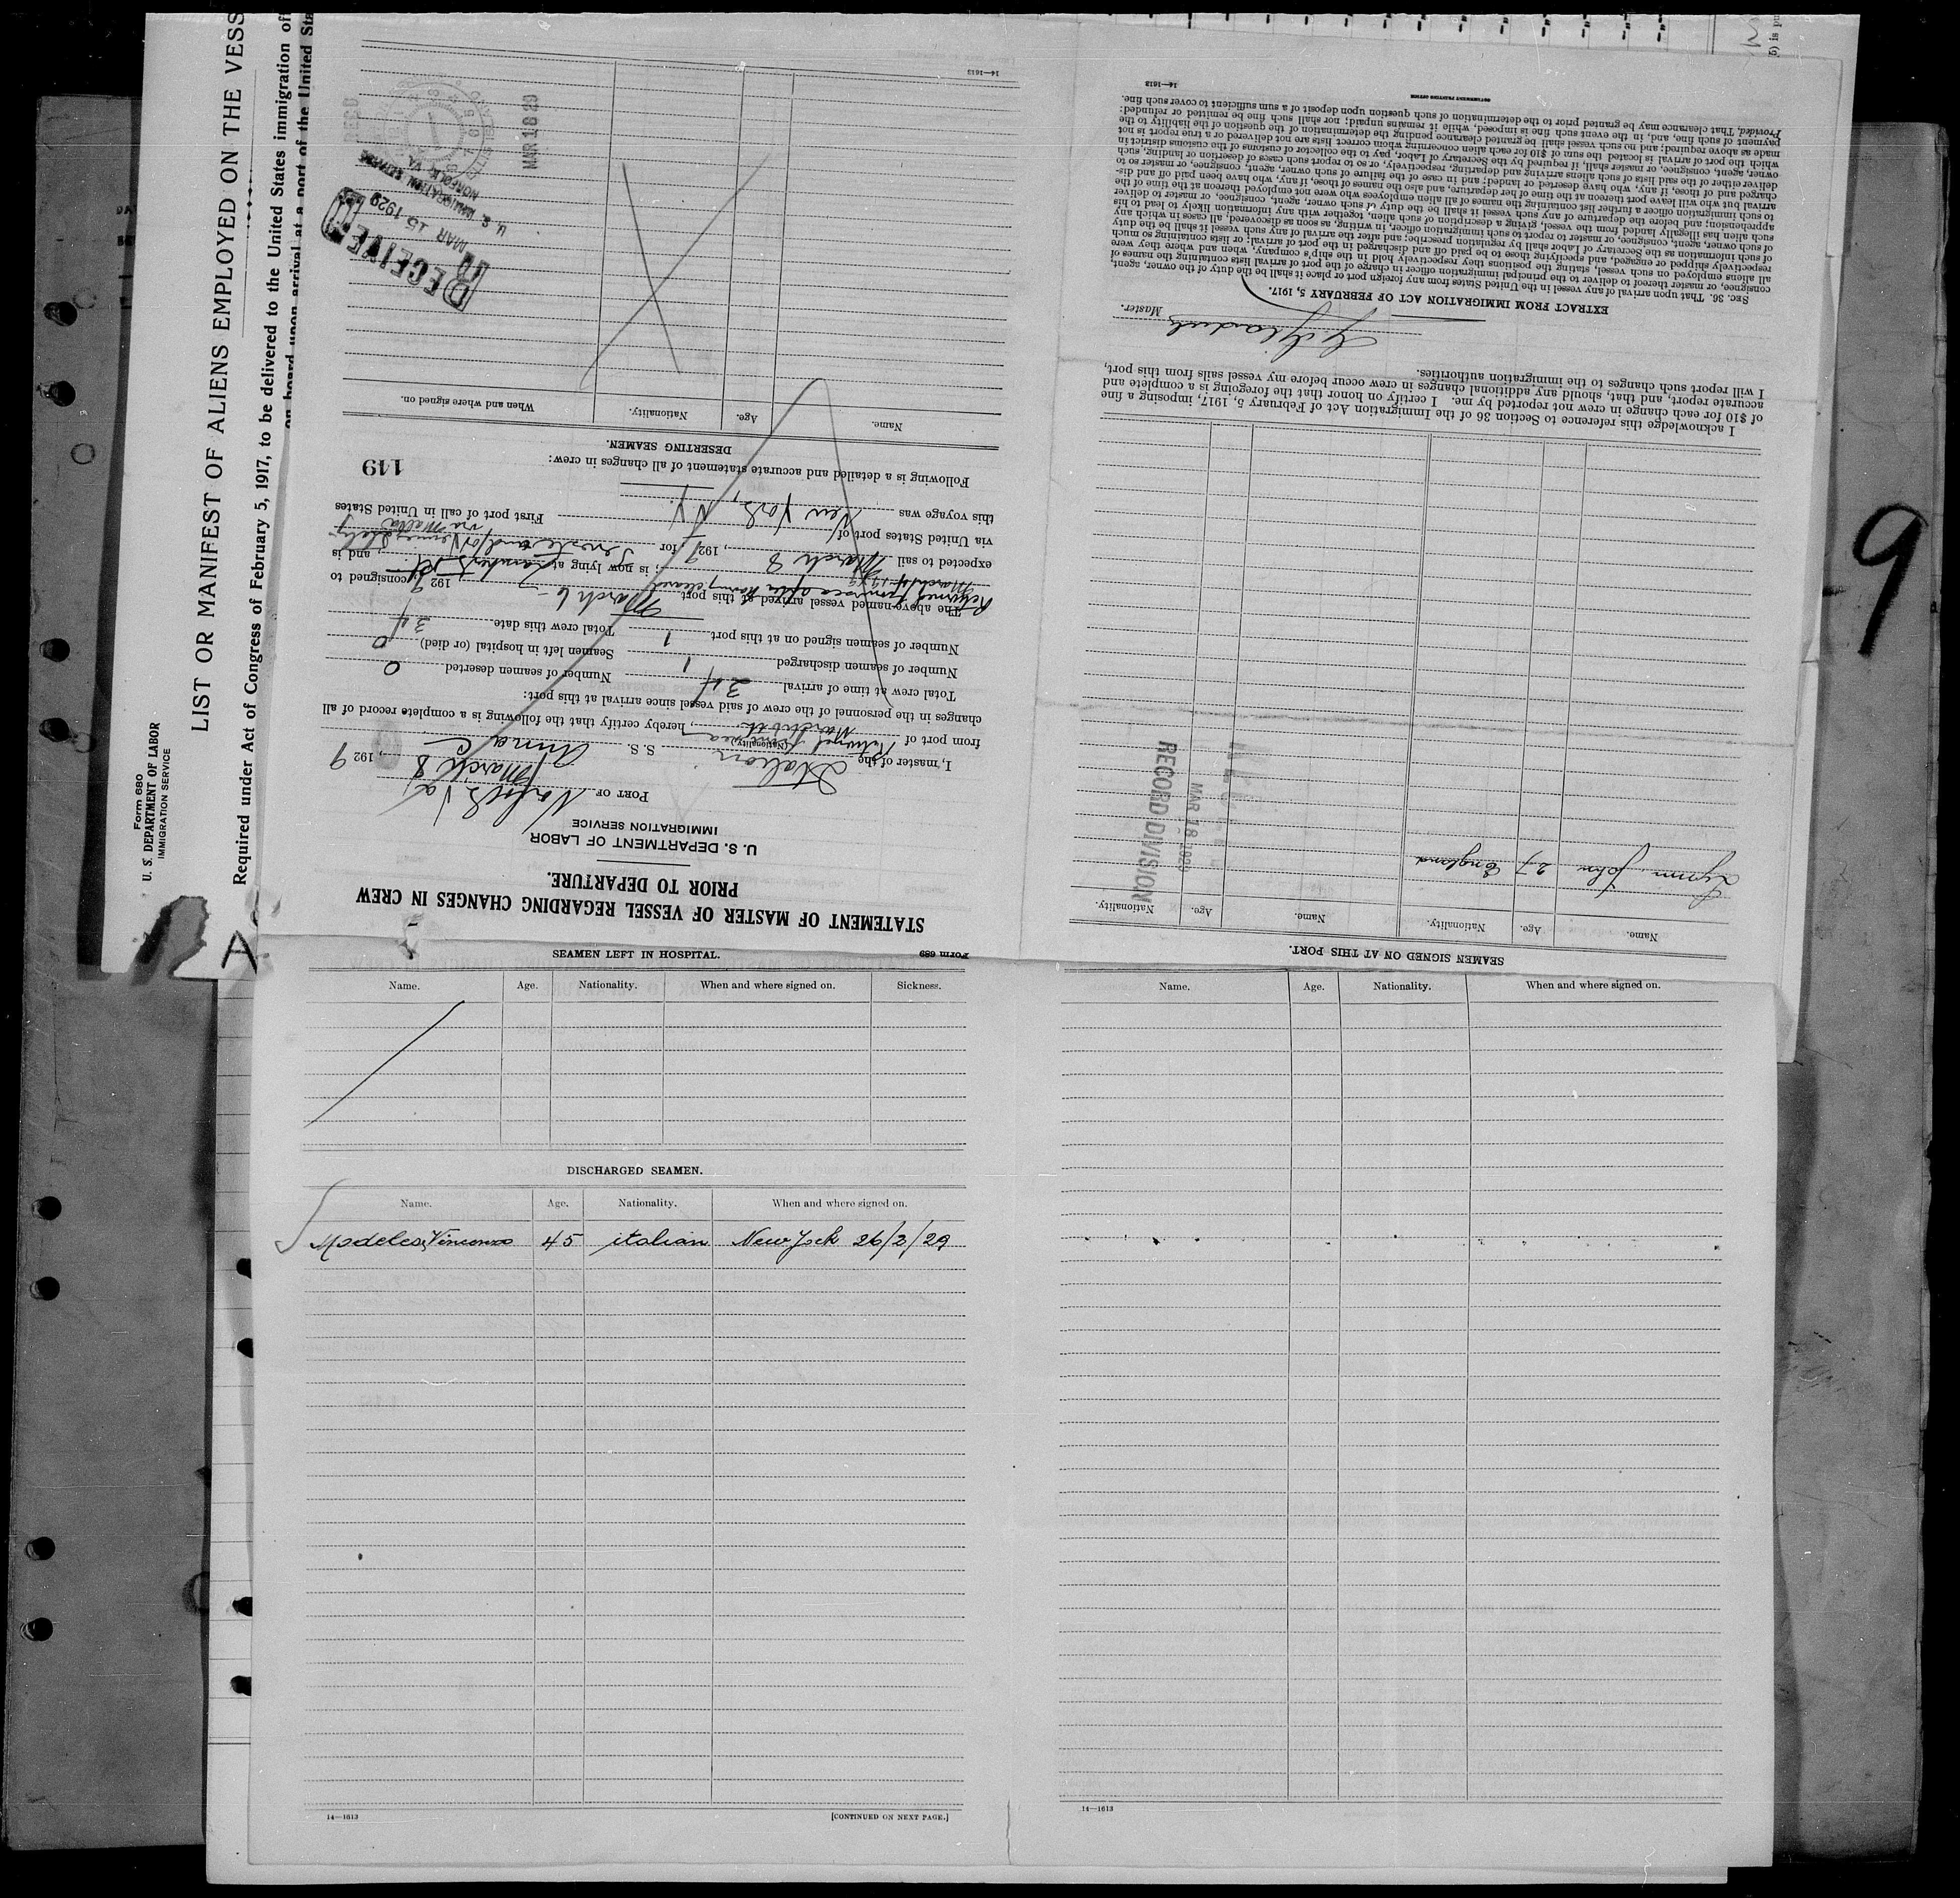 Form 680
U. S. DEPARTMENT OF LABOR
IMMIGRATION SERVICE
LIST OR MANIFEST OF ALIENS EMPLOYED ON THE VESS
Required under Act of Congress of February 5, 1917, to be delivered to the United States immigration of
on board upon arrival at a port of the United Sta
A
9
Form 689
STATEMENT OF MASTER OF VESSEL REGARDING CHANGES IN CREW
PRIOR TO DEPARTURE.
U. S. DEPARTMENT OF LABOR
IMMIGRATION SERVICE
PORT OF Norfolk, Va
March 8, 1929
I, master of the Italian (Nationality) S. S. Anna C
from port of, hereby certify that the following is a complete record of all
changes in the personnel of the crew of said vessel since arrival at this port:
Total crew at time of arrival 34 Number of seamen deserted 0
Number of seamen discharged 1 Seamen left in hospital (or died) 0
Number of seamen signed on at this port 1 Total crew this date 34
The above-named vessel arrived at this port March 6 1929, consigned to
Returned March 4 1929
; is now lying at, and is
expected to sail March 8, 1929, for and/or Italy
via Malta
via United States port of First port of call in United States
this voyage was New York, N.Y.
Following is a detailed and accurate statement of all changes in crew:
149
DESERTING SEAMEN.
Name. Age. Nationality. When and where signed on.
RECEIVED
MAR 15 1929
U. S. IMMIGRATION SERVICE
NORFOLK VA.
MAR 18 29
14—1613
SEAMEN LEFT IN HOSPITAL.
Name. Age. Nationality. When and where signed on. Sickness.
DISCHARGED SEAMEN.
Name. Age. Nationality. When and where signed on.
Vincenzo 45 italian New York 26/2/29
14—1613 [CONTINUED ON NEXT PAGE.]
Name. Age. Nationality. When and where signed on.
14—1613
SEAMEN SIGNED ON AT THIS PORT.
Name. Age. Nationality. Name. Age. Nationality.
Lynn John 27 England
MAR 18 1929
RECORD DIVISION
I acknowledge this reference to Section 36 of the Immigration Act of February 5, 1917, imposing a fine
of $10 for each change in crew not reported by me. I certify on honor that the foregoing is a complete and
accurate report, and that, should any additional changes in crew occur before my vessel sails from this port,
I will report such changes to the immigration authorities.
Master.
EXTRACT FROM IMMIGRATION ACT OF FEBRUARY 5, 1917.
SEC. 36. That upon arrival of any vessel in the United States from any foreign port or place it shall be the duty of the owner, agent,
consignee, or master thereof to deliver to the principal immigration officer in charge of the port of arrival lists containing the names of
all aliens employed on such vessel, stating the positions they respectively hold in the ship's company, when and where they were
respectively shipped or engaged, and specifying those to be paid off and discharged in the port of arrival; or lists containing so much
of such information as the Secretary of Labor shall by regulation prescribe; and after the arrival of any such vessel it shall be the duty
of such owner, agent, consignee, or master to report to such immigration officer, in writing, as soon as discovered, all cases in which any
such alien has illegally landed from the vessel, giving a description of such alien, together with any information likely to lead to his
apprehension; and before the departure of any such vessel it shall be the duty of such owner, agent, consignee, or master to deliver
to such immigration officer a further list containing the names of all alien employees who were not employed thereon at the time of the
arrival but who will leave port thereon at the time of her departure, and also the names of those, if any, who have been paid off and dis-
charged and of those, if any, who have deserted or landed; and in case of the failure of such owner, agent, consignee, or master so to
deliver either of the said lists of such aliens arriving and departing, respectively, or so to report such cases of desertion or landing, such
owner, agent, consignee, or master shall, if required by the Secretary of Labor, pay to the collector of customs of the customs district in
which the port of arrival is located the sum of $10 for each alien concerning whom correct lists are not delivered or a true report is not
made as above required; and no such vessel shall be granted clearance pending the determination of the question of the liability to the
payment of such fine, and, in the event such fine is imposed, while it remains unpaid; nor shall such fine be remitted or refunded:
Provided, That clearance may be granted prior to the determination of such question upon deposit of a sum sufficient to cover such fine.
GOVERNMENT PRINTING OFFICE
14—1613